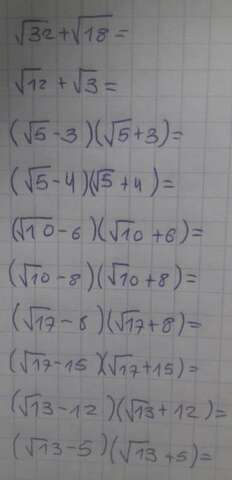 √32 + √18 =
√12 + √3 =
(√5 - 3)(√5 + 3) =
(√5 - 4)(√5 + 4) =
(√10 - 6)(√10 + 6) =
(√10 - 8)(√10 + 8) =
(√17 - 8)(√17 + 8) =
(√17 - 15)(√17 + 15) =
(√13 - 12)(√13 + 12) =
(√13 - 5)(√13 + 5) =